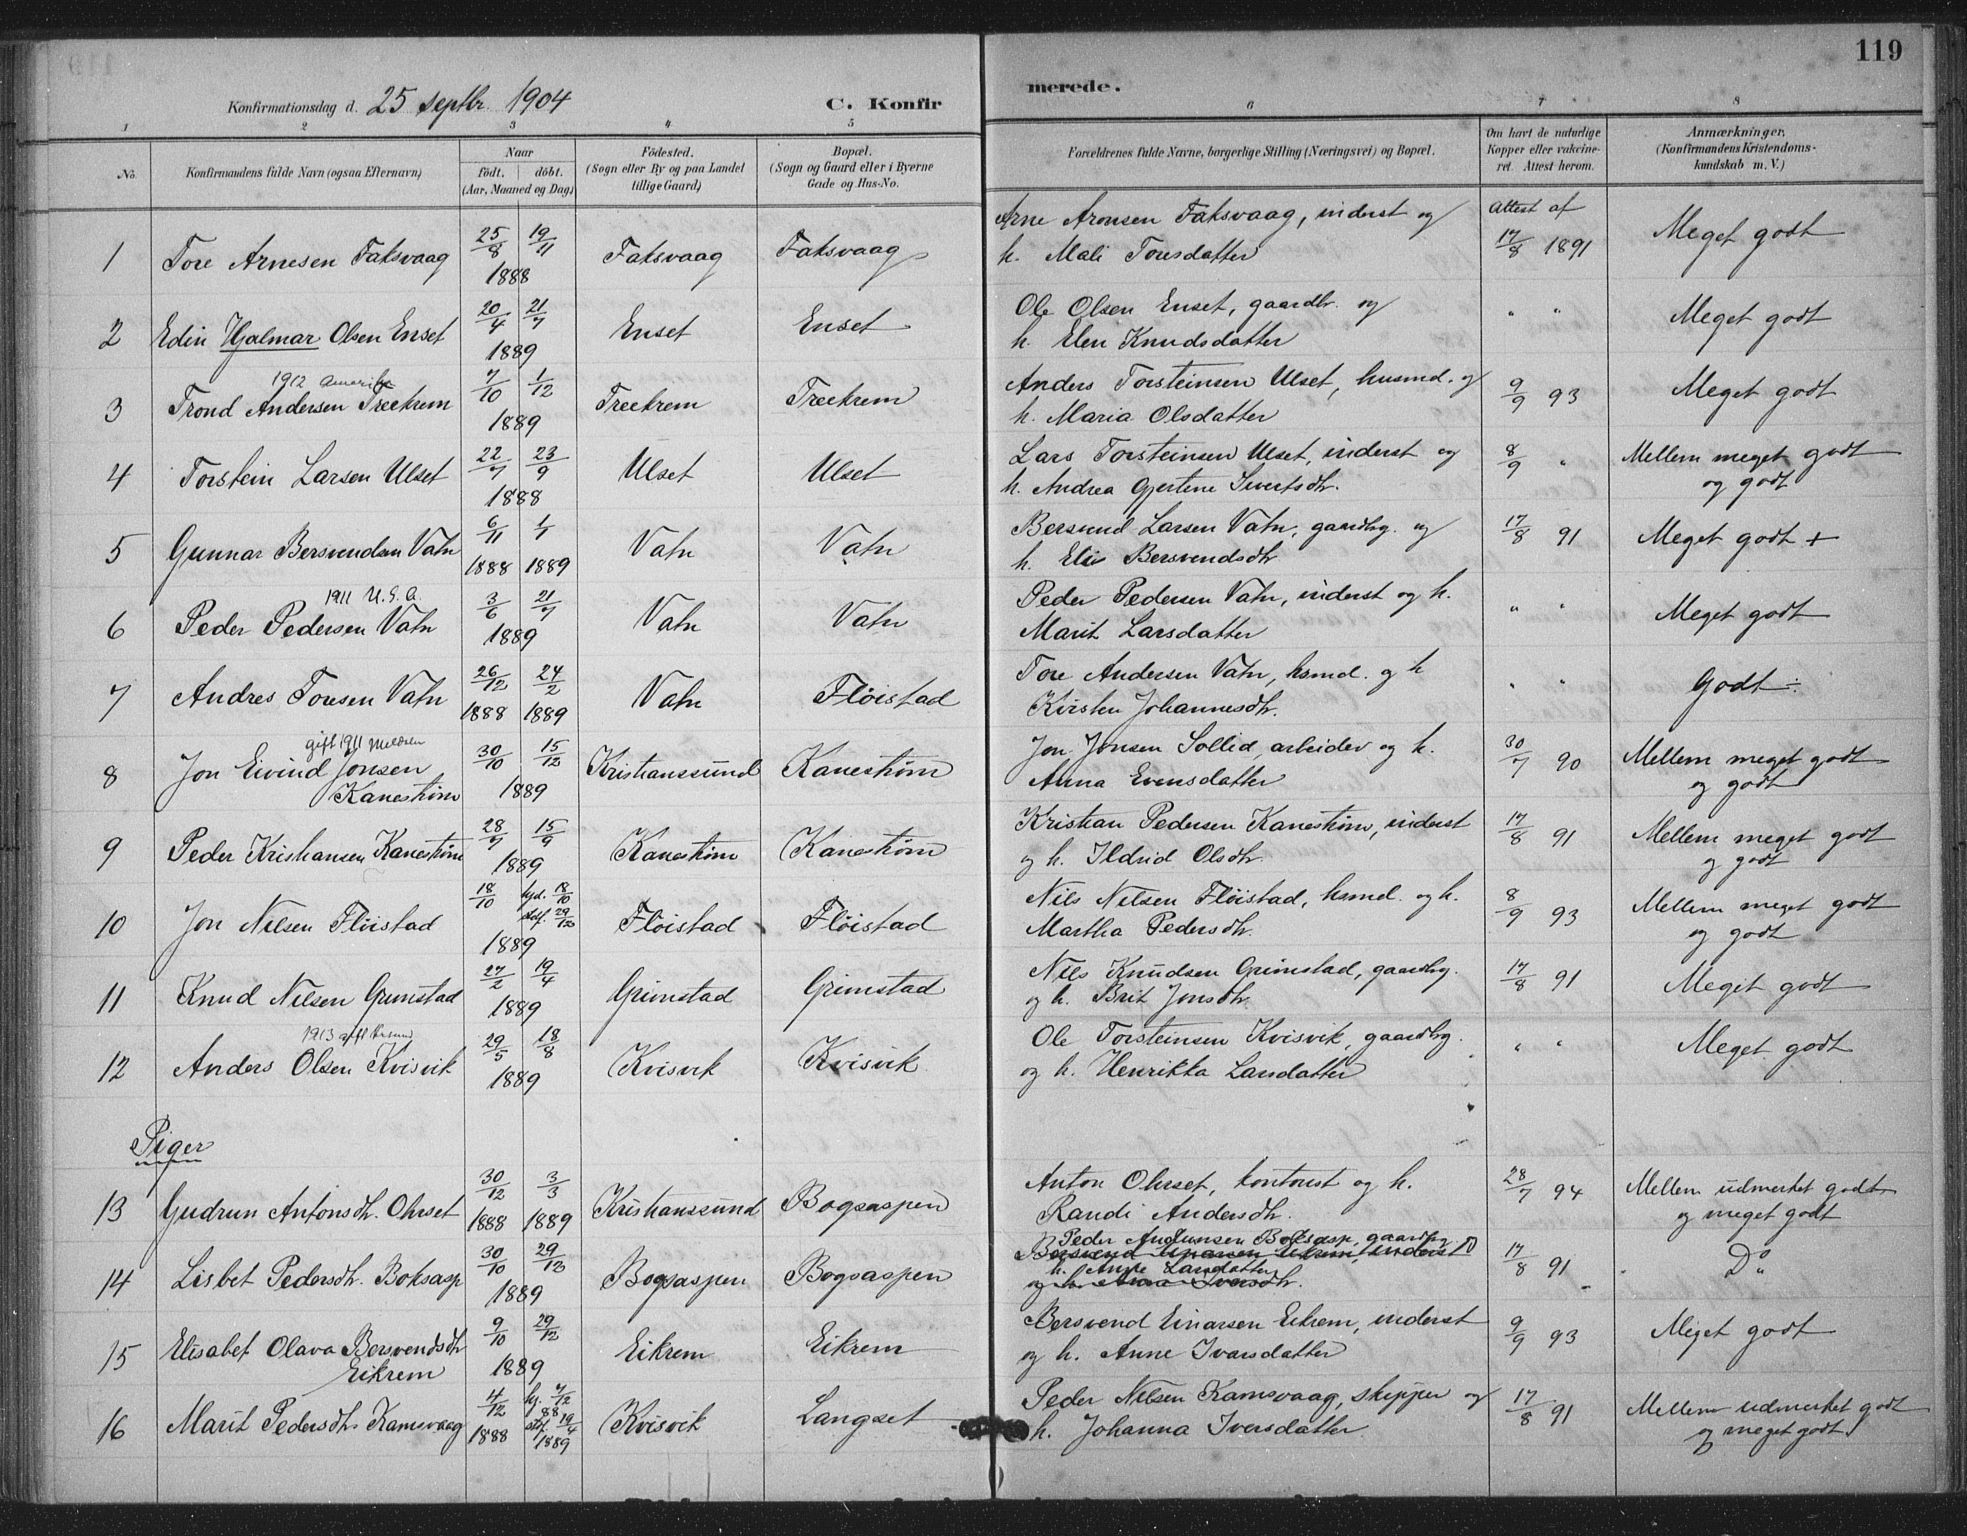 119
Konfirmationsdag d. 25 septbr. 1904
C. Konfir
merede.
1 2 3 4 5 6 7 8
No.
Konfirmandens fulde Navn (ogsaa Efternavn)
Naar
födt. döbt.
(Aar, Maaned og Dag)
Födested.
(Sogn eller By og paa Landet
tillige Gaard)
Bopæl.
(Sogn og Gaard eller i Byerne
Gade og Hus-No.
Forældrenes fulde Navne, borgerlige Stilling (Næringsvei) og Bopæl.
Om havt de naturlige
Kopper eller vakcine-
ret. Attest herom.
Anmærkninger.
(Konfirmandens Kristendoms-
kundskab m. V.)
1 Tore Arnesen Faksvaag 25/8 19/11 1888 Faksvaag Faksvaag
Arne Aronsen Faksvaag, inderst og
h. Mali Toresdatter
Attest af
17/8 1891
Meget godt
2 Edin Hjalmar Olsen Enset 20/4 21/7 1889 Enset Enset
Ole Olsen Enset, gaardbr. og
h. Elen Knudsdatter
" "
Meget godt
1912 Amerika
3 Trond Andersen Treekrem 7/10 1/12 1889 Treekrem Treekrem
Anders Torsteinsen Ulset, husmd. og
h. Maria Olsdatter
9/9 93
Meget godt
4 Torstein Larsen Ulset 22/7 23/9 1888 Ulset Ulset
Lars Torsteinsen Ulset, inderst og
h. Andrea Gjertine Ivertsdtr.
8/9 "
Mellem meget godt
og godt
5 Gunnar Bersvendsen Vatn 6/11 1888 1/1 1889 Vatn Vatn
Bersvend Larsen Vatn, gaardbrg. og
h. Elis Bersvendsdtr
17/8 91
Meget godt +
1911 U.S.A.
6 Peder Pedersen Vatn 3/6 21/7 1889 Vatn Vatn
Peder Pedersen Vatn, inderst og h.
Marit Larsdatter
" "
Meget godt
7 Andres Toresen Vatn 26/12 1888 24/2 1889 Vatn Fløistad
Tore Andersen Vatn, hsmd. og h
Kirsten Johannesdtr.
" "
Godt ÷
gift 1911
8 Jon Eivind Jonsen
Kanestrøm 30/10 15/12 1889 Kristianssund Kanestrøm
Jon Jonsen Sollid, arbeider og h.
Anna Evensdatter
30/7 90
Mellem meget godt
og godt
9 Peder Kristiansen Kanestrøm 28/7 15/9 1889 Kanestrøm Kanestrøm
Kristian Pedersen Kanestrøm, inderst
og h. Ildrid Olsdtr.
17/8 91
Mellem meget godt
og godt
10 Jon Nilsen Fløistad 18/10 hjd. 18/10 stdf. 29/12 1889 Fløistad Fløistad
Nils Nilsen Fløistad, hsmd. og h.
Martha Pedersdtr.
8/9 93
Mellem meget godt
og godt
11 Knud Nilsen Grimstad 27/2 19/4 1889 Grimstad Grimstad
Nils Knudsen Grimstad, gaardbrg.
og h. Brit Jonsdtr.
17/8 91
Meget godt
1913 gift
12 Anders Olsen Kvisvik 29/5 18/8 1889 Kvisvik Kvisvik
Ole Torsteinsen Kvisvik, gaardbrg.
og h. Henrikka Larsdatter
" "
Meget godt
Piger
13 Gudrun Antonsdtr. Ohrset 30/12 1888 3/3 1889 Kristianssund Bogsaspen
Anton Ohrset, kontorist og h.
Randi Andersdtr.
28/7 94
Mellem udmerket godt
og meget godt
14 Lisbet Pedersdtr. Boksasp 30/10 29/12 1889 Bogsaspen Bogsaspen
Peder Audunsen Boksasp, gaardbrg
Bersvend Einarsen Eikrem, inderst
h. Anne Larsdatter
og h. Anne Iversdtr.
17/8 91
Do
15 Elisabet Olava Bersvendsdtr
Eikrem 9/10 29/12 1889 Eikrem Eikrem
Bersvend Einarsen Eikrem, inderst
og h. Anne Ivarsdatter
9/9 93
Meget godt
16 Marit Pedersdtr. Kamsvaag 4/12 1888 hj. 7/12 88 stdf. 19/4 1889 Kvisvik Langset
Peder Nilsen Kamsvaag, skipper og
h. Johanna Iversdatter
17/8 91
Mellem udmerket godt
og meget godt